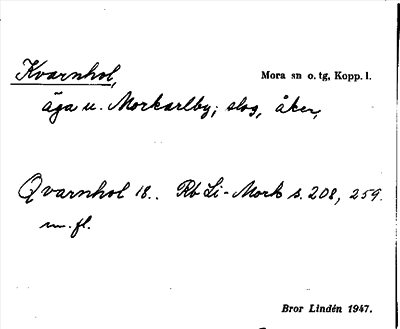 Kvarnhol, Mora sn o. tg, Kopp. l.
äga u. Morkarlby; slog, åker,
Qvarnhol 18.. Rb Li-Mork s. 208, 259.
m. fl.
Bror Lindén 1947.